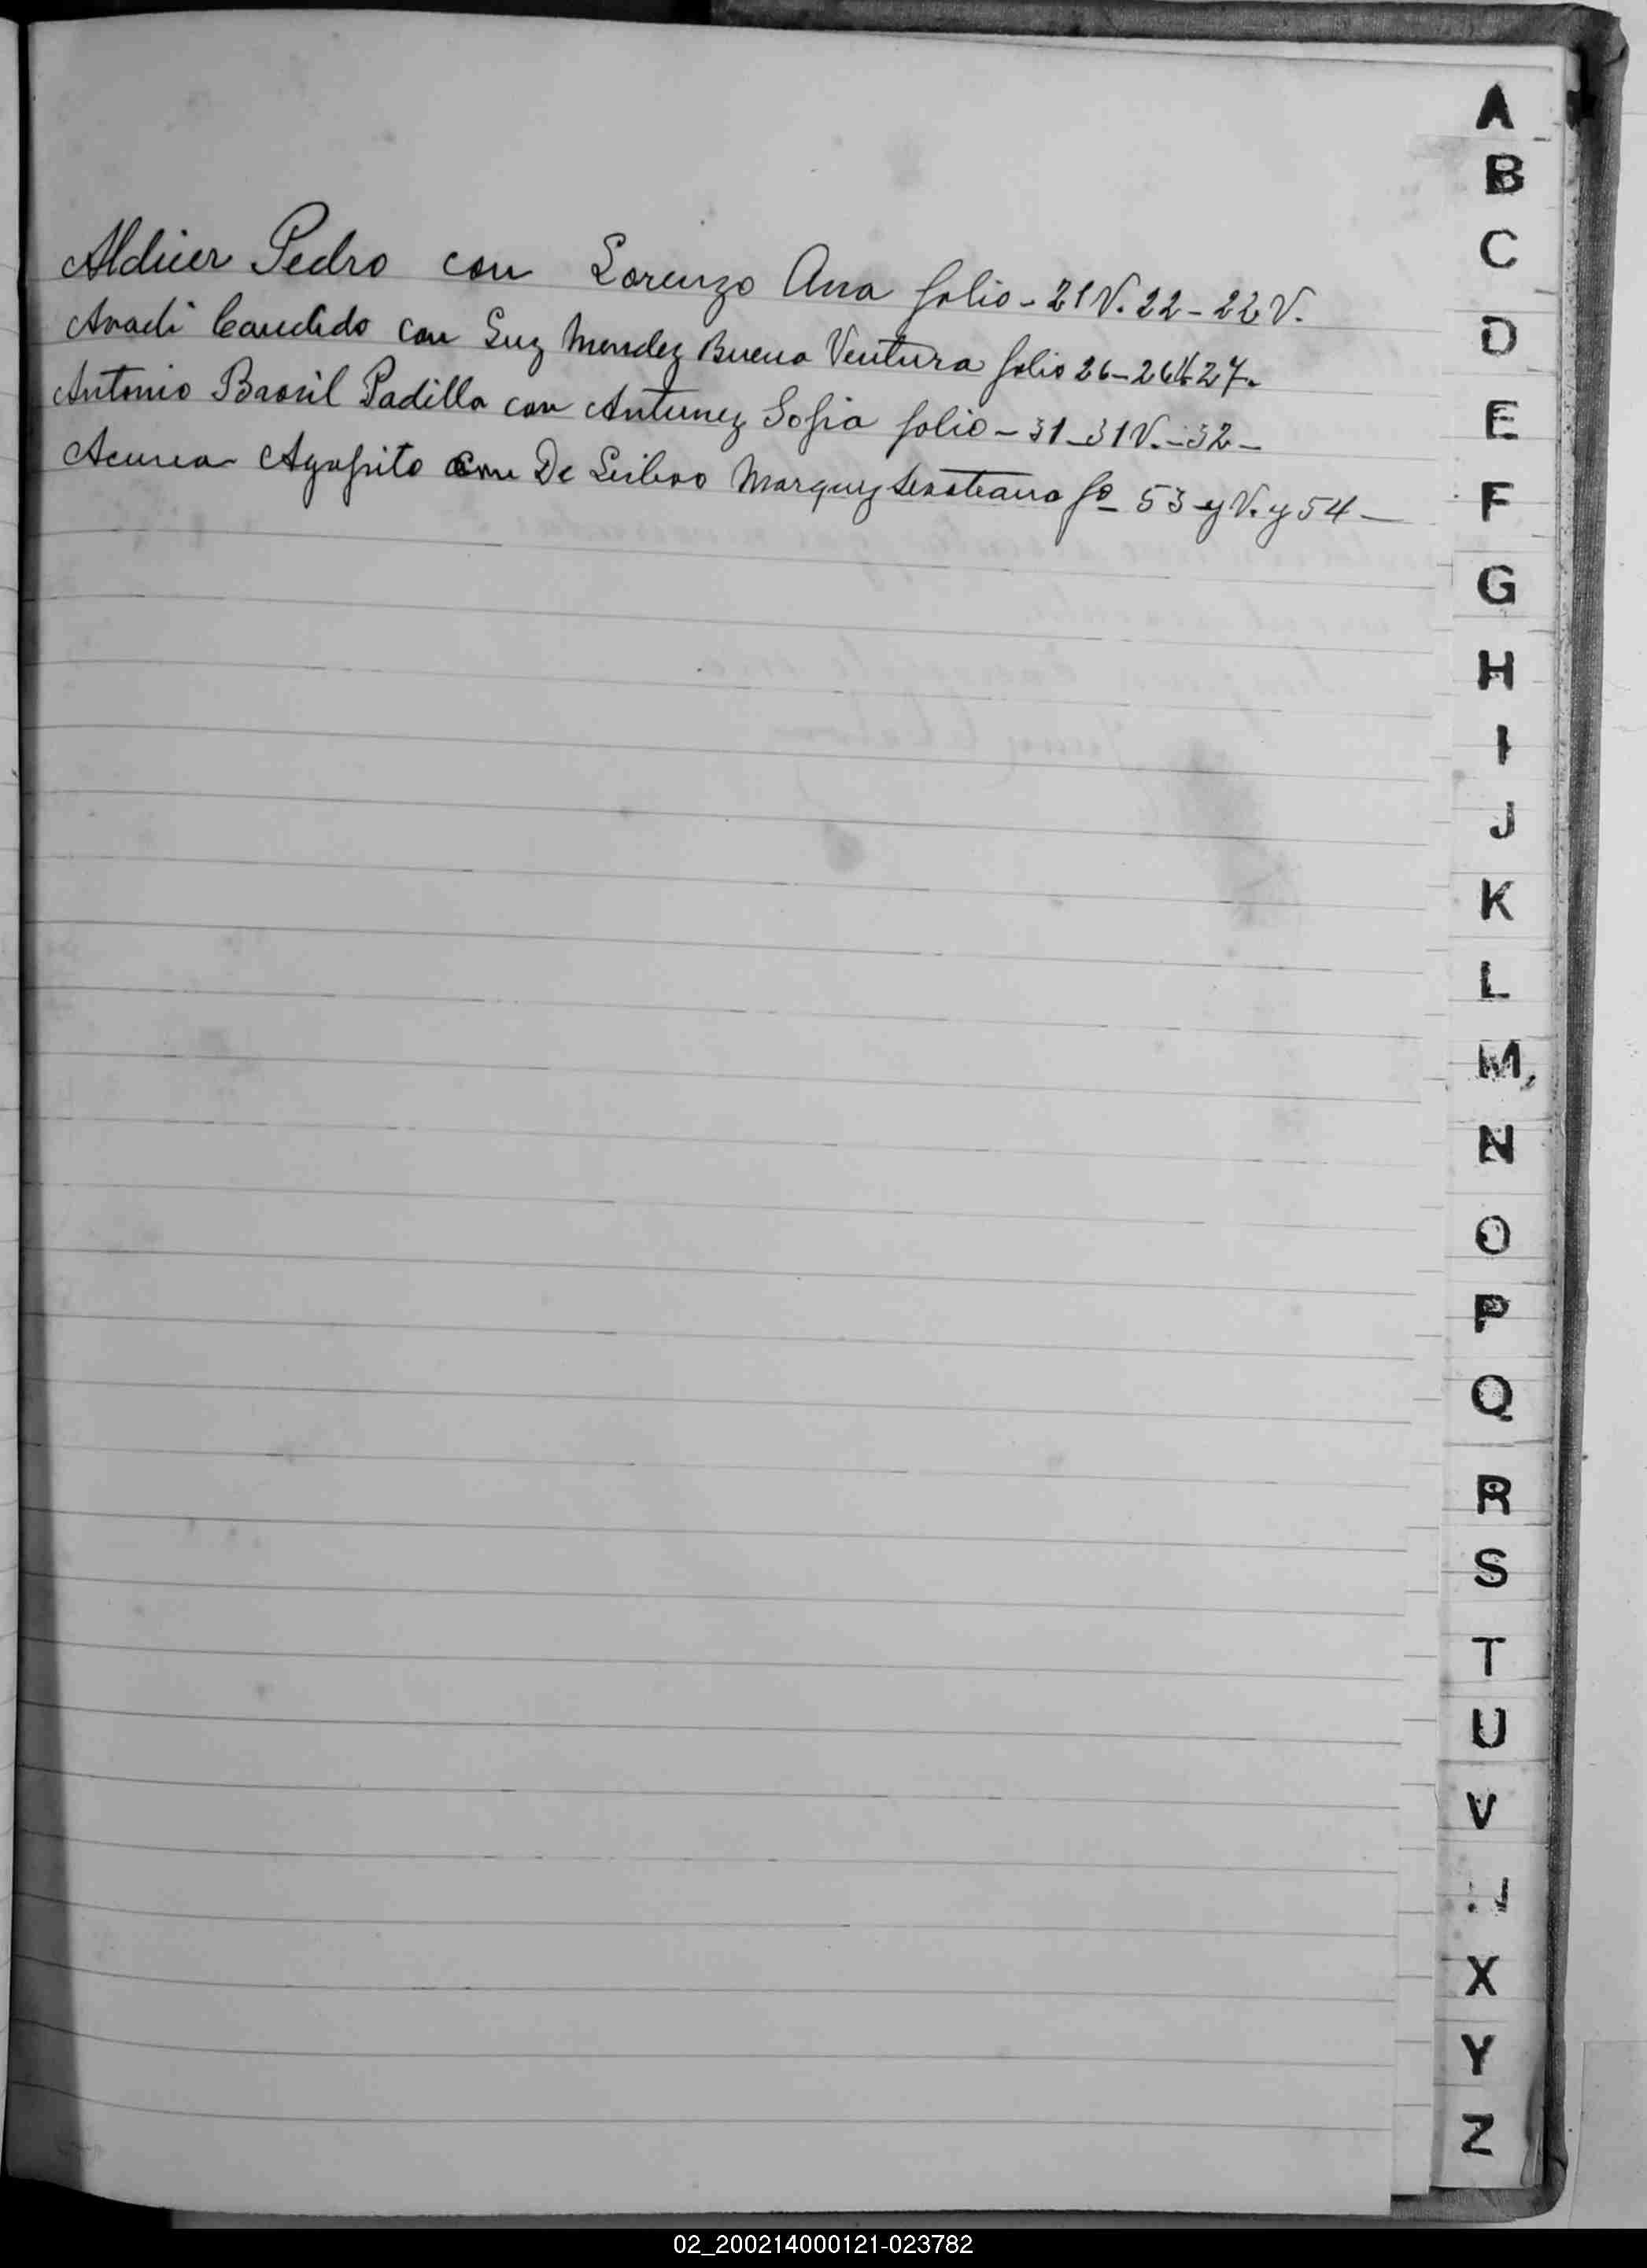 Pedro con Lorenzo Ana folio - 21 V. 22 - 22 V.
Candido con Luz Mendez Buena Ventura folio 26 - 26V. 27.
Antonio Brasil Padilla con Antunez Sofia folio - 31 - 31 V. - 32 -
Acuna Agapito con De Marquez fo 53 y V. y 54 -
A
B
C
D
E
F
G
H
I
J
K
L
M
N
O
P
Q
R
S
T
U
V
X
Y
Z
02_200214000121-023782